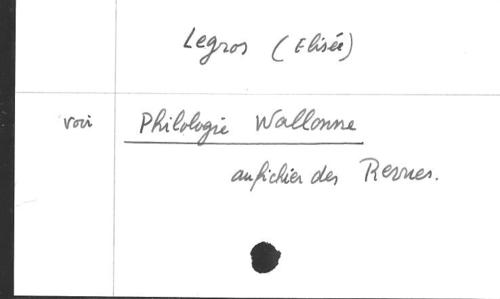 Legros (Elisée)
voir Philologie Wallonne
au fichier des Revues.